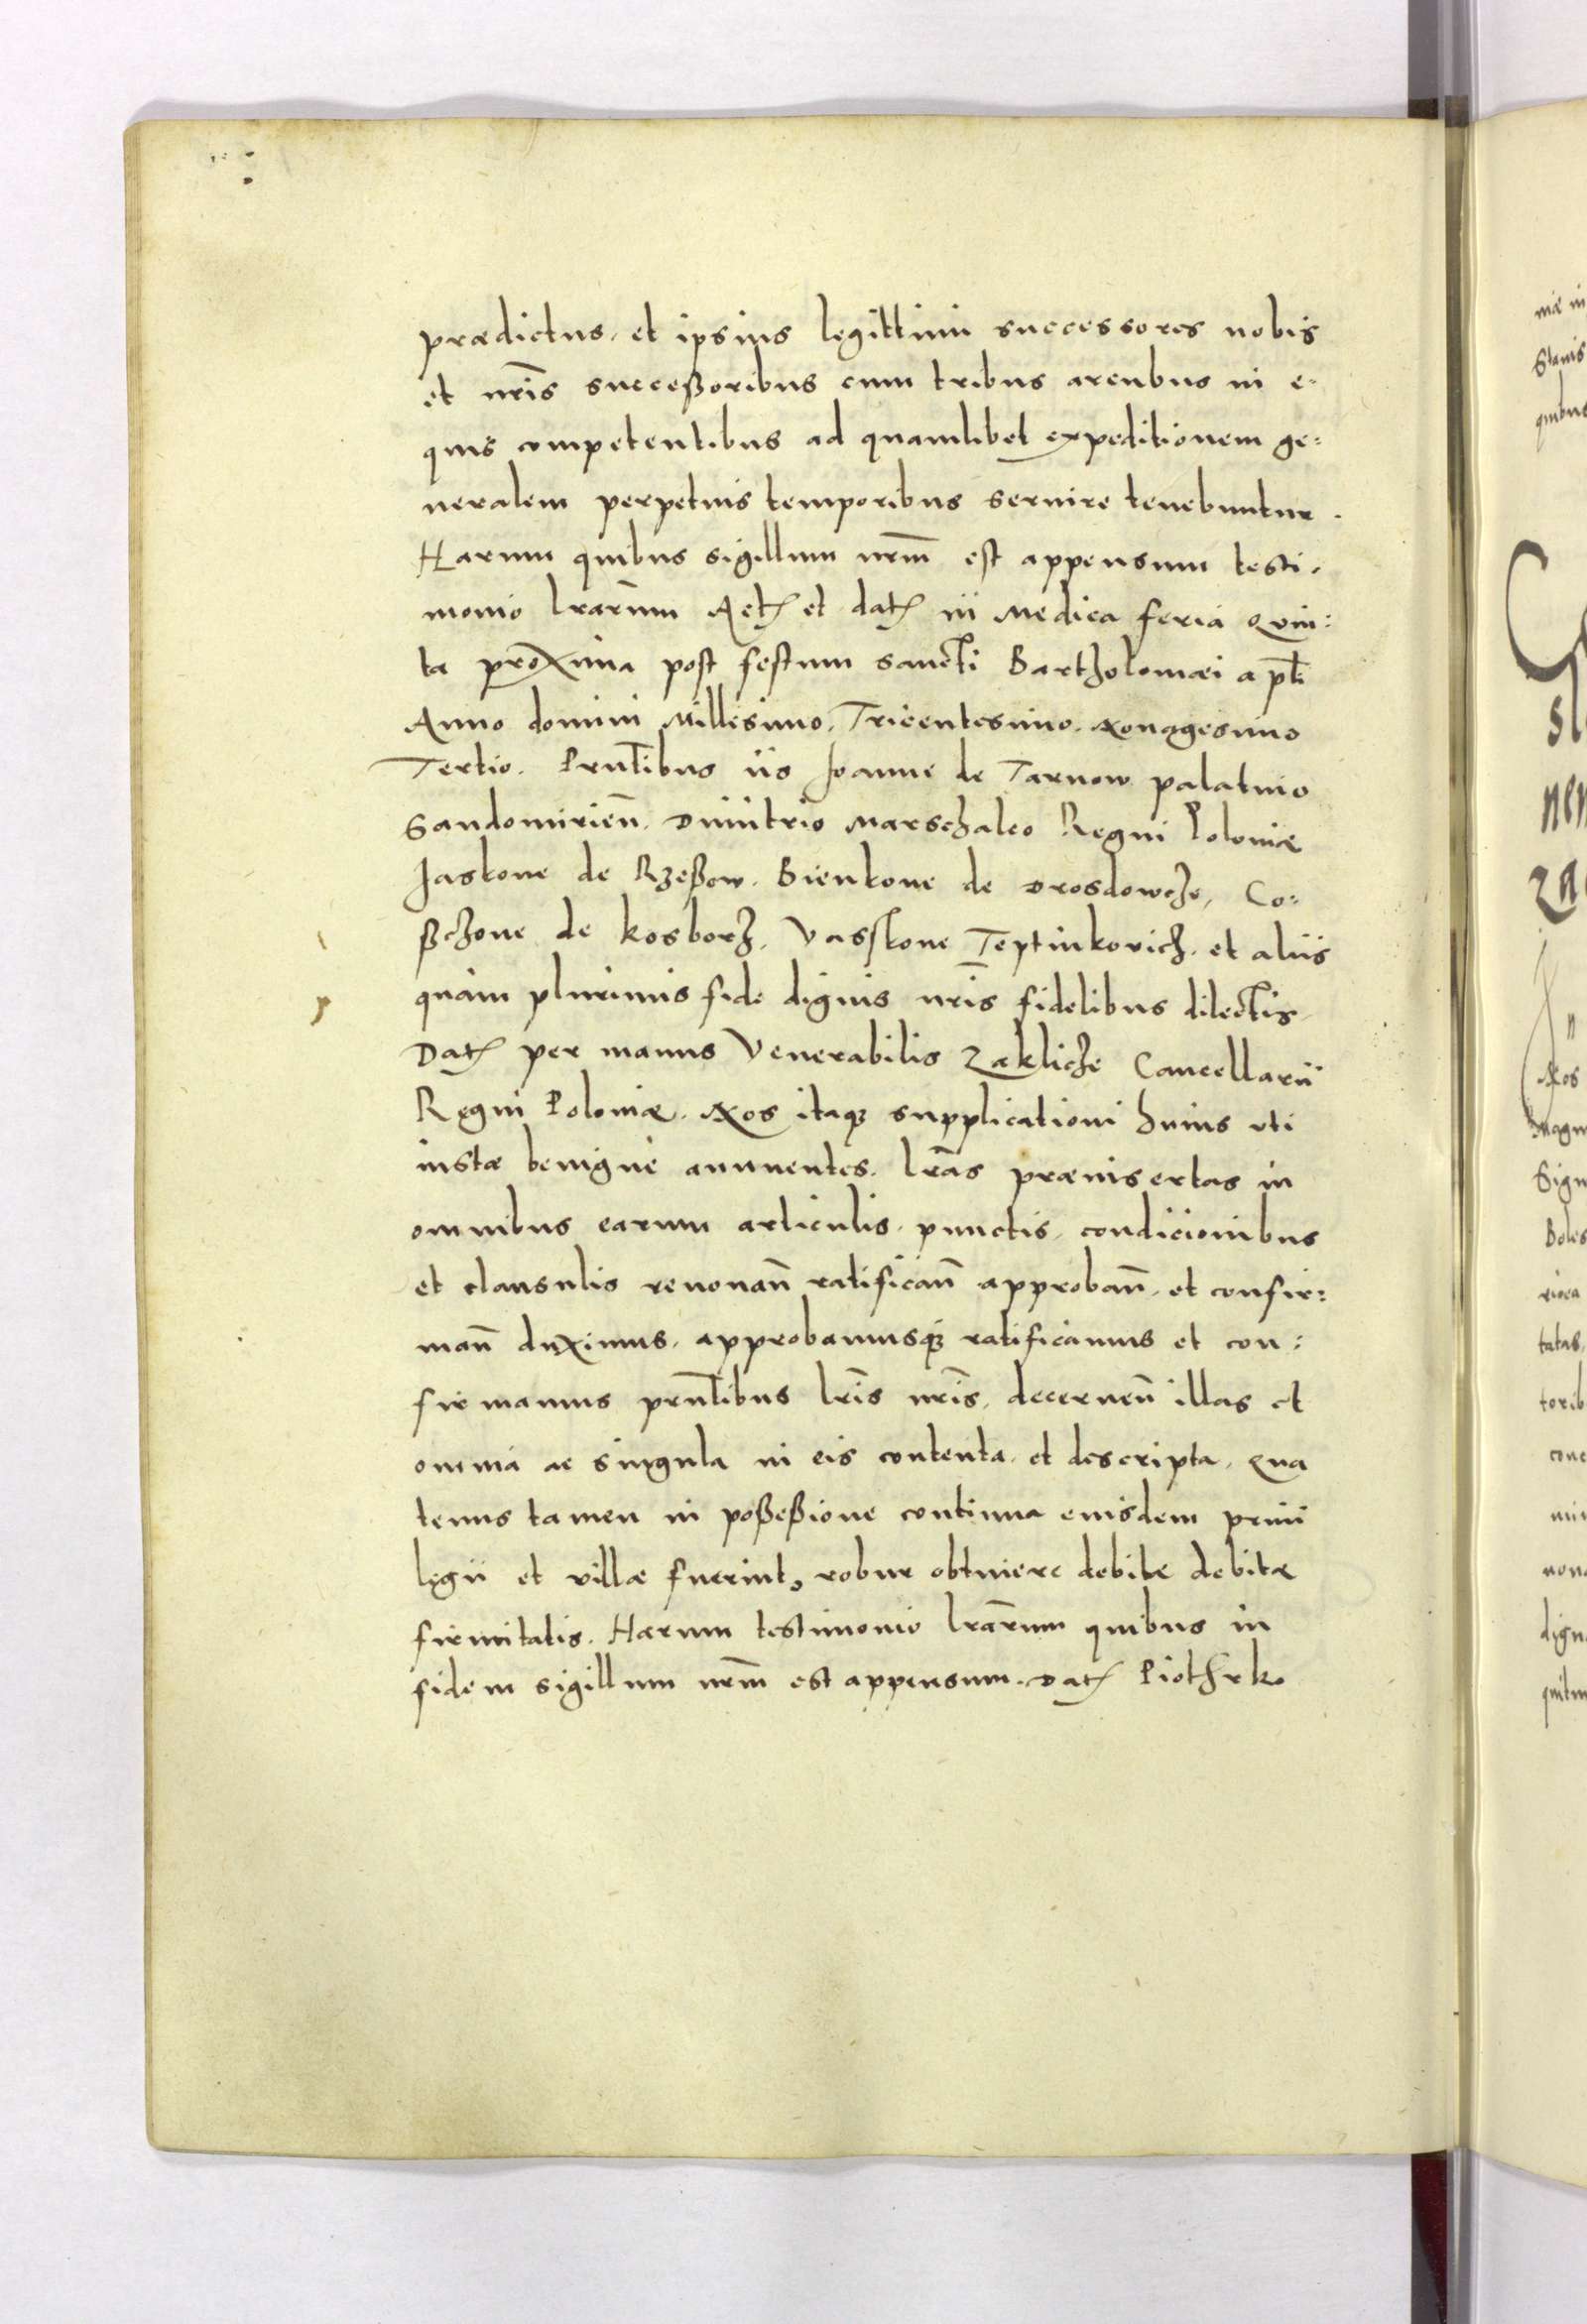 prædictus, et ipsius legittimi successores nobis
et nr̄is succeßoribus cum tribus arcubus in e=
quis competentibus ad quamlibet expeditionem ge=
neralem perpetuis temporibus seruire tenebuntur.
Harum quibus sigillum nr̄m est appensum testi=
monio lr̄arum Actȝ et datȝ in Medica feria Quin=
ta proxima post festum sancti Bartholomæi apl̄i
Anno domini Millesimo, Tricentesimo, Nonagesimo
Tertio. Prn̄tibus iis Joanne de Tarnow palatino
Sandomirien̄. Dimitrio Marschalco Regni Poloniæ
Jaskone de Rzeßow. Bienkone de Drosdowche, Co=
ßchone de Kosborȝ, Vasskone Teptinkovich. et aliis
quàm plurimis fide dignis nr̄is fidelibus dilectis.
Datȝ per manus Venerabilis Zakliche Cancellarii
Regni Poloniæ. Nos itaqȝ supplicationi huius uti
iustæ benignè annuentes. lr̄as præinsertas in
omnibus earum articulis, punctis, condicionibus
et clausulis renouan̄ ratifican̄ approban̄, et confir=
man̄ duximus, approbamusqȝ ratificamus et con=
firmamus prn̄tibus lr̄is nr̄is, decernen̄ illas et
omnia ac singula in eis contenta, et descripta, Qua
tenus tamen in poßeßione continua eiusdem priui
legii et villæ fuerint, robur obtinere debite debitæ
firmitatis. Harum testimonio lr̄arum quibus in
fidem sigillum nr̄m est appensum. Datȝ Piothrko